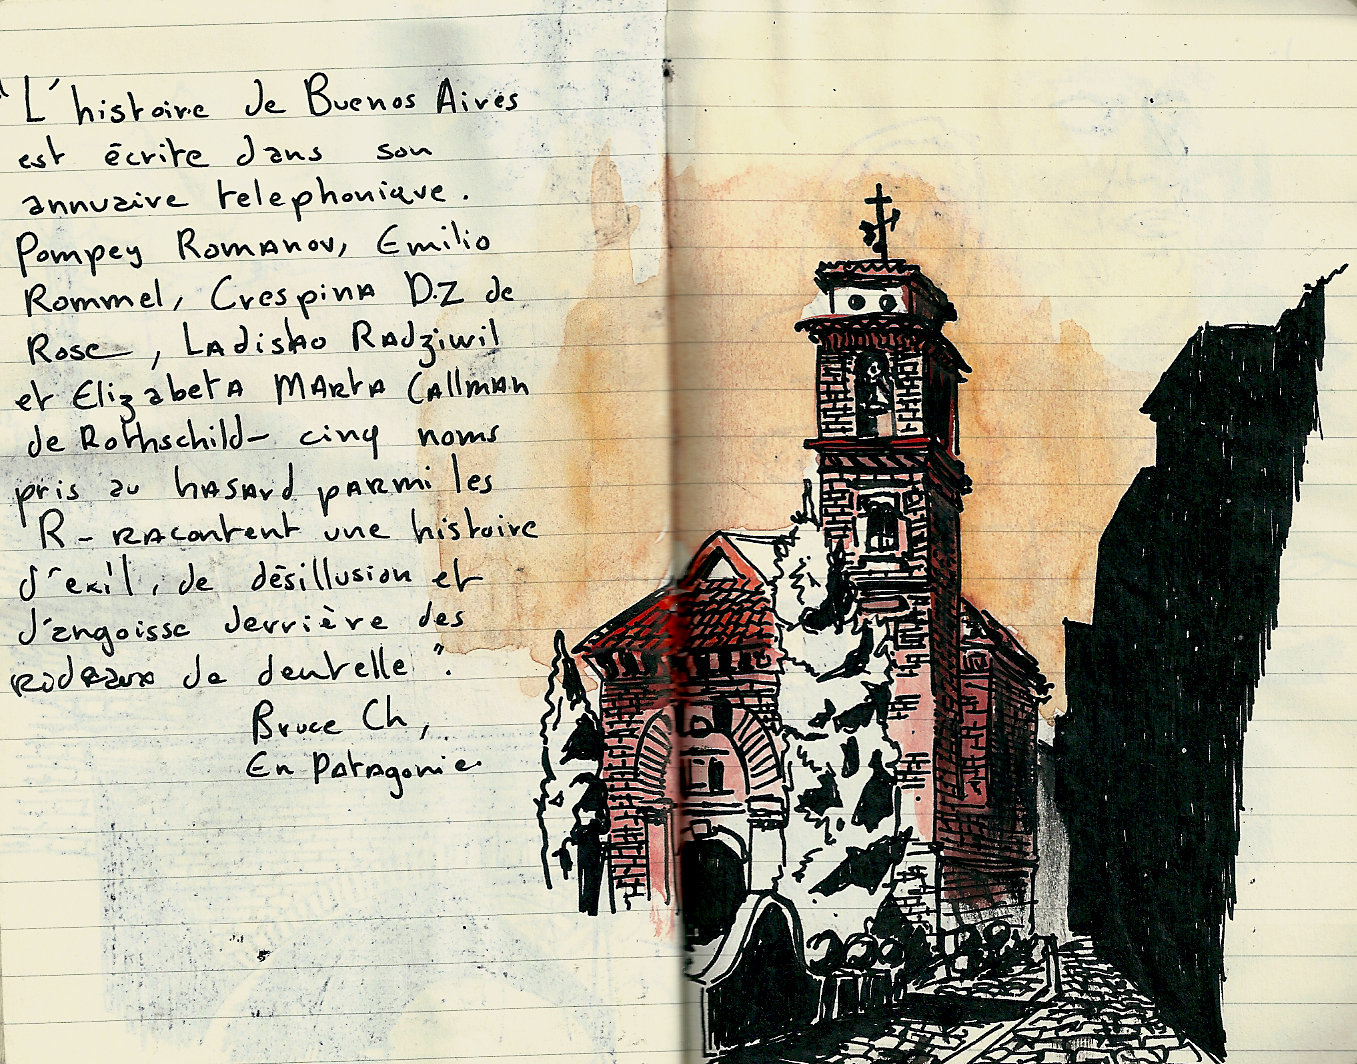 "L'histoire de Buenos Aires
est écrite dans son
annuaire telephonique.
Pompey Romanov, Emilio
Rommel, Crespina D.Z de
Rose, Ladislao Radziwil
et Elizabeta Marta Callman
de Rothschild - cinq noms
pris au hasard parmi les
R - racontent une histoire
d'exil, de désillusion et
d'angoisse derrière des
rideaux de dentelle".
Bruce Ch,
En Patagonie.